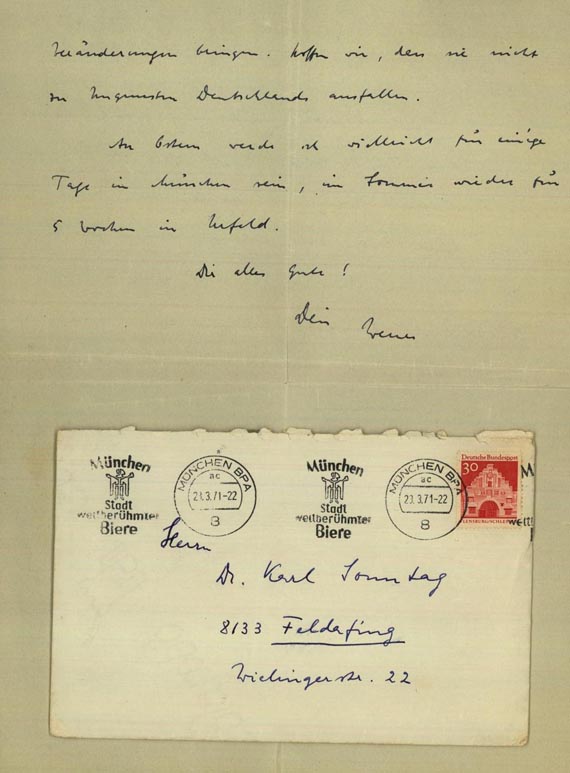 Veränderungen bringen. Hoffen wir, dass sie nicht
zu Ungunsten Deutschlands ausfallen.
An Ostern werde ich vielleicht für einige
Tage in München sein, im Sommer wieder für
5 Wochen in Urfeld.
Dir alles Gute!
Dein Werner
München
Stadt
weltberühmter
Biere
MÜNCHEN BPA
ac
3.71-22
8
München
Stadt
weltberühmter
Biere
MÜNCHEN BPA
ac
23.3.71-22
8
Deutsche Bundespost
30
FLENSBURG/SCHLESW
Herrn
Dr. Karl Sonntag
8133 Feldafing
Wielingerstr. 22